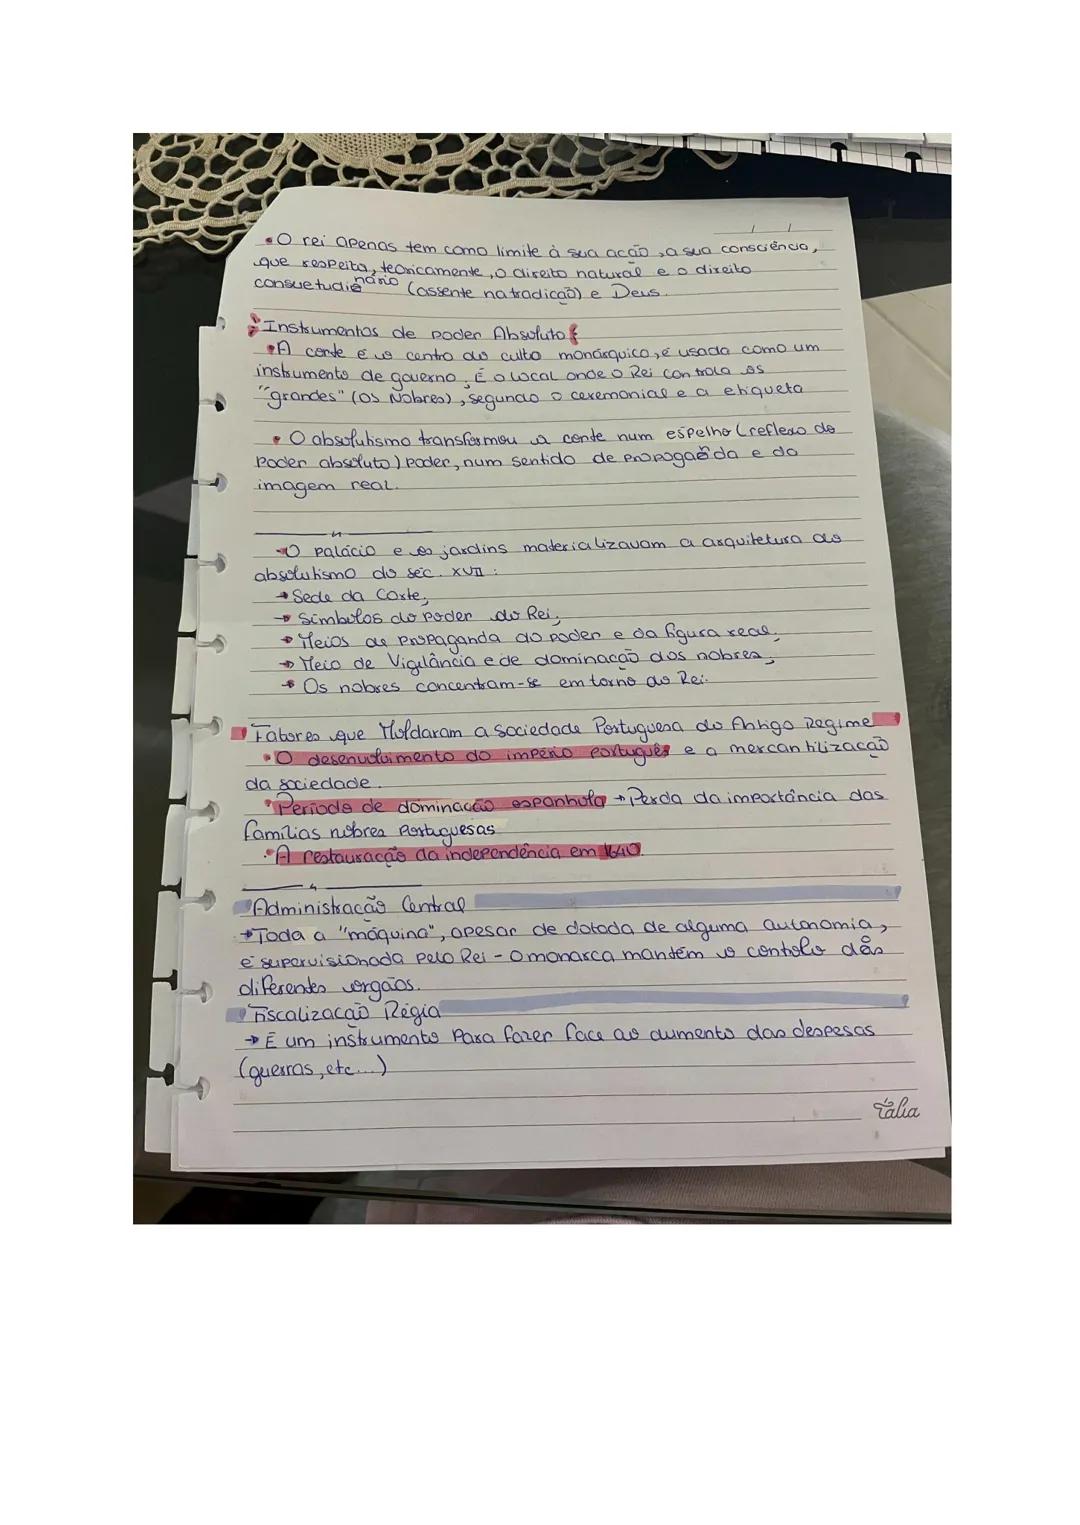 • O rei apenas tem como limite à sua ação, a sua consciência,
que respeita, teoricamente, o direito natural e o direito
consuetudinário (assente na tradição) e Deus.
Instrumentos de poder Absoluto
• A corte é o centro do culto monárquico, é usada como um
instrumento de governo. É o local onde o Rei controla os
"grandes" (os Nobres), segundo o cerimonial e a etiqueta
• O absolutismo transformou a corte num espelho (reflexo do
poder absoluto) poder, num sentido de propaganda e da
imagem real.
• O palácio e os jardins materializavam a arquitetura do
absolutismo do séc. XVII:
→ Sede da Corte;
→ Símbolos do poder do Rei;
→ Meios de propaganda do poder e da figura real;
→ Meio de Vigilância e de dominação dos nobres;
→ Os nobres concentram-se em torno do Rei.
Fatores que Moldaram a sociedade Portuguesa do Antigo Regime
• O desenvolvimento do império português e a mercantilização
da sociedade.
• Período de dominação espanhola → Perda da importância das
famílias nobres Portuguesas
• A restauração da independência em 1640.
Administração Central
→ Toda a "máquina", apesar de dotada de alguma autonomia,
é supervisionada pelo Rei - O monarca mantém o controlo dos
diferentes orgãos.
Fiscalização Régia
→ É um instrumento Para fazer face ao aumento das despesas
(guerras, etc...)
Tália